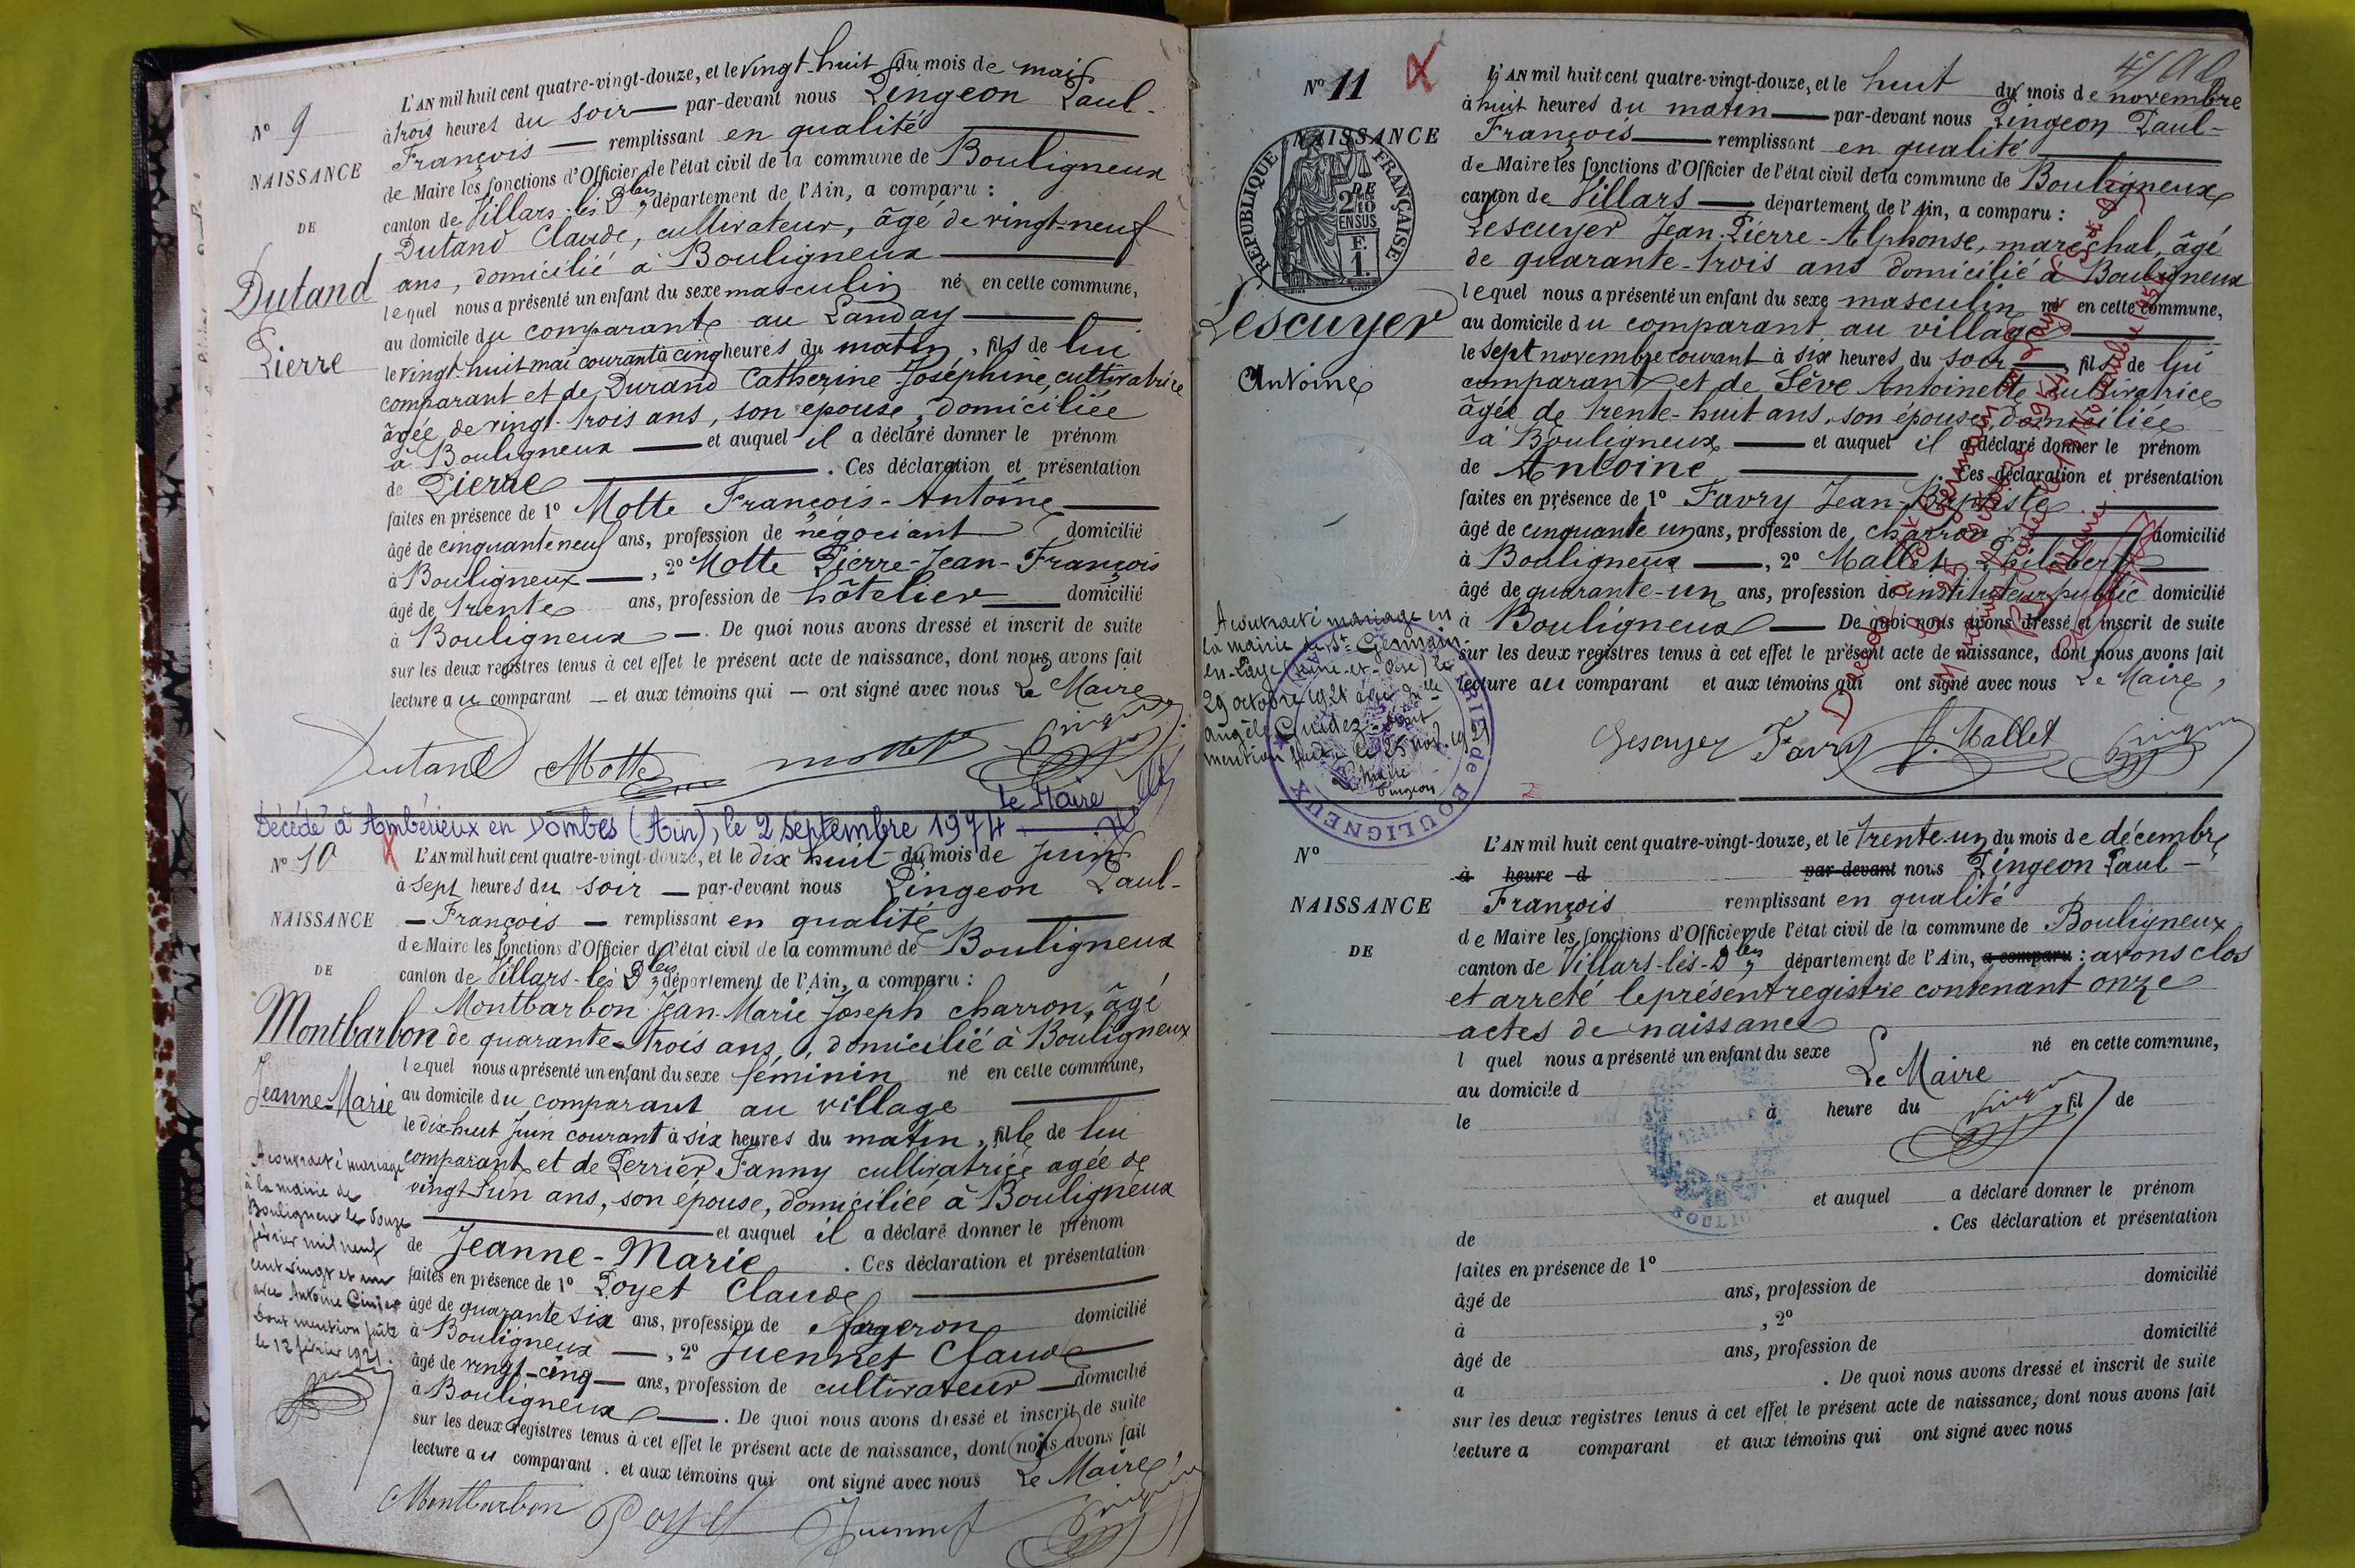 N° 9
NAISSANCE
DE
Dutand
Pierre
L'AN mil huit cent quatre-vingt-douze, et le vingt-huit du mois de mai
à trois heures du soir — par-devant nous Pingeon Paul-
François — remplissant en qualité
de Maire les fonctions d'Officier de l'état civil de la commune de Bouligneux
canton de Villars-lès-Dbes, département de l'Ain, a comparu :
Dutand Claude, cultivateur, âgé de vingt-neuf
ans, domicilié à Bouligneux
lequel nous a présenté un enfant du sexe masculin né en cette commune,
au domicile du comparant au Landay
le vingt-huit mai courant à cinq heures du matin, fils de lui
comparant et de Durand Catherine Joséphine, cultivatrice
âgée de vingt-trois ans, son épouse, domiciliée
à Bouligneux — et auquel il a déclaré donner le prénom
de Pierre . Ces déclaration et présentation
faites en présence de 1° Motte François-Antoine
âgé de cinquante neuf ans, profession de négociant domicilié
à Bouligneux —, 2° Motte Pierre-Jean-François
âgé de trente ans, profession de hôtelier domicilié
à Bouligneux —. De quoi nous avons dressé et inscrit de suite
sur les deux registres tenus à cet effet le présent acte de naissance, dont nous avons fait
lecture au comparant — et aux témoins qui — ont signé avec nous Le Maire
Dutand Motte Motte Pingeon
Le Maire
Décédé à Ambérieux en Dombes (Ain), le 2 septembre 1974
N° 10
NAISSANCE
DE
Montbarbon
Jeanne-Marie
A contracté mariage
à la mairie de
Bouligneux le douze
février mil neuf
cent vingt et un
avec Antoine Cinier
dont mention faite
le 12 février 1921.
L'AN mil huit cent quatre-vingt-douze, et le dix huit du mois de juin
à sept heures du soir — par-devant nous Pingeon Paul-
— François — remplissant en qualité
de Maire les fonctions d'Officier de l'état civil de la commune de Bouligneux
canton de Villars-lès-Dbes, département de l'Ain, a comparu :
Montbarbon Jean-Marie Joseph charron, âgé
de quarante-trois ans, domicilié à Bouligneux
lequel nous a présenté un enfant du sexe féminin né en cette commune,
au domicile du comparant au village
le dix-huit Juin courant à six heures du matin, fille de lui
comparant et de Perrier Fanny cultivatrice agée de
vingt-un ans, son épouse, domiciliée à Bouligneux
et auquel il a déclaré donner le prénom
de Jeanne-Marie . Ces déclaration et présentation
faites en présence de 1° Poyet Claude
âgé de quarante six ans, profession de forgeron domicilié
à Bouligneux —, 2° Juennet Claude
âgé de vingt-cinq — ans, profession de cultivateur — domicilié
à Bouligneux —. De quoi nous avons dressé et inscrit de suite
sur les deux registres tenus à cet effet le présent acte de naissance, dont nous avons fait
lecture au comparant . et aux témoins qui ont signé avec nous Le Maire,
Montbarbon Poyet Juennet Pingeon
N° 11
NAISSANCE
RÉPUBLIQUE FRANÇAISE
2 DMES 10
EN SUS
F. 1.
Lescuyer
Antoine
A contracté mariage en
la mairie de St-Germain-
en-Laye (Seine-et-Oise) le
29 octobre 1921 avec Melle
Angèle Guidez dont
mention faite le 25 nov. 1921
Le Maire
Pingeon
MAIRIE de BOULIGNEUX
L'AN mil huit cent quatre-vingt-douze, et le huit du mois de novembre
à huit heures du matin — par-devant nous Pingeon Paul-
François — remplissant en qualité
de Maire les fonctions d'Officier de l'état civil de la commune de Bouligneux
canton de Villars — département de l'Ain, a comparu :
Lescuyer Jean-Pierre-Alphonse, maréchal, âgé
de quarante-trois ans domicilié à Bouligneux
lequel nous a présenté un enfant du sexe masculin né en cette commune,
au domicile du comparant au village
le sept novembre courant à six heures du soir —, fils de lui
comparant et de Sève Antoinette cultivatrice
âgée de trente-huit ans, son épouse, domiciliée
à Bouligneux — et auquel il a déclaré donner le prénom
de Antoine . Ces déclaration et présentation
faites en présence de 1° Favry Jean-Baptiste
âgé de cinquante un ans, profession de charron domicilié
à Bouligneux —, 2° Mallet Philibert
âgé de quarante-un ans, profession de instituteur public domicilié
à Bouligneux — De quoi nous avons dressé et inscrit de suite
sur les deux registres tenus à cet effet le présent acte de naissance, dont nous avons fait
lecture au comparant et aux témoins qui ont signé avec nous Le Maire,
Lescuyer Favry P. Mallet Pingeon
N°
NAISSANCE
DE
L'AN mil huit cent quatre-vingt-douze, et le trente-un du mois de décembre
à heure d par-devant nous Pingeon Paul-
François remplissant en qualité
de Maire les fonctions d'Officier de l'état civil de la commune de Bouligneux
canton de Villars-lès-Dbes département de l'Ain, a comparu : avons clos
et arreté le présent registre contenant onze
actes de naissance
l quel nous a présenté un enfant du sexe né en cette commune,
Le Maire
au domicile d
le à heure du fil de
et auquel a déclaré donner le prénom
de . Ces déclaration et présentation
faites en présence de 1°
âgé de ans, profession de domicilié
à , 2°
âgé de ans, profession de domicilié
a . De quoi nous avons dressé et inscrit de suite
sur les deux registres tenus à cet effet le présent acte de naissance, dont nous avons fait
lecture a comparant et aux témoins qui ont signé avec nous